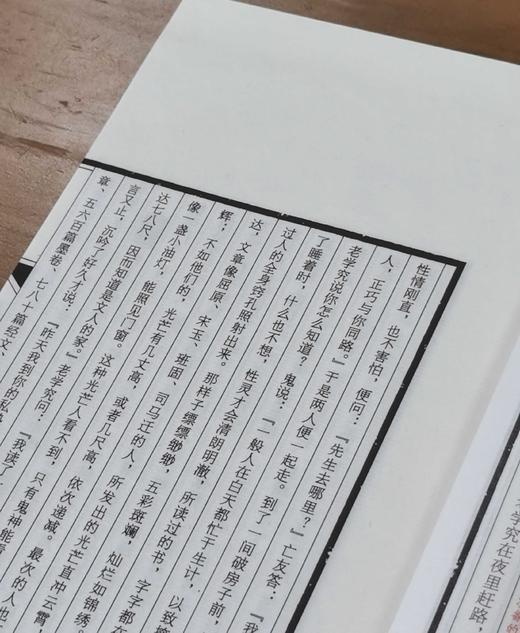 学究在夜里赶路，
性情刚直，也不害怕，便问：『先生去哪里？』亡友答：『我
人，正巧与你同路。』于是两人便一起走。到了一间破房子前，
老学究说你怎么知道？鬼说：『一般人在白天都忙于生计，以致
了睡着时，什么也不想，性灵才会清朗明澈，所读过的书，字字都在
过人的全身窍孔照射出来。那样子缥缥缈缈，五彩斑斓，灿烂如锦绣。
达，文章像屈原、宋玉、班固、司马迁的人，所发出的光芒直冲云霄，
辉；不如他们的，光芒有几丈高，或者几尺高，依次递减。最次的人也
像一盏小油灯，能照见门窗。这种光芒人看不到，只有鬼神能看
达七八尺，因而知道是文人的家。』老学究问：『我读了
言又止，沉吟了好久才说：『昨天我到你的私塾
章、五六百篇墨卷、七八十篇经文、